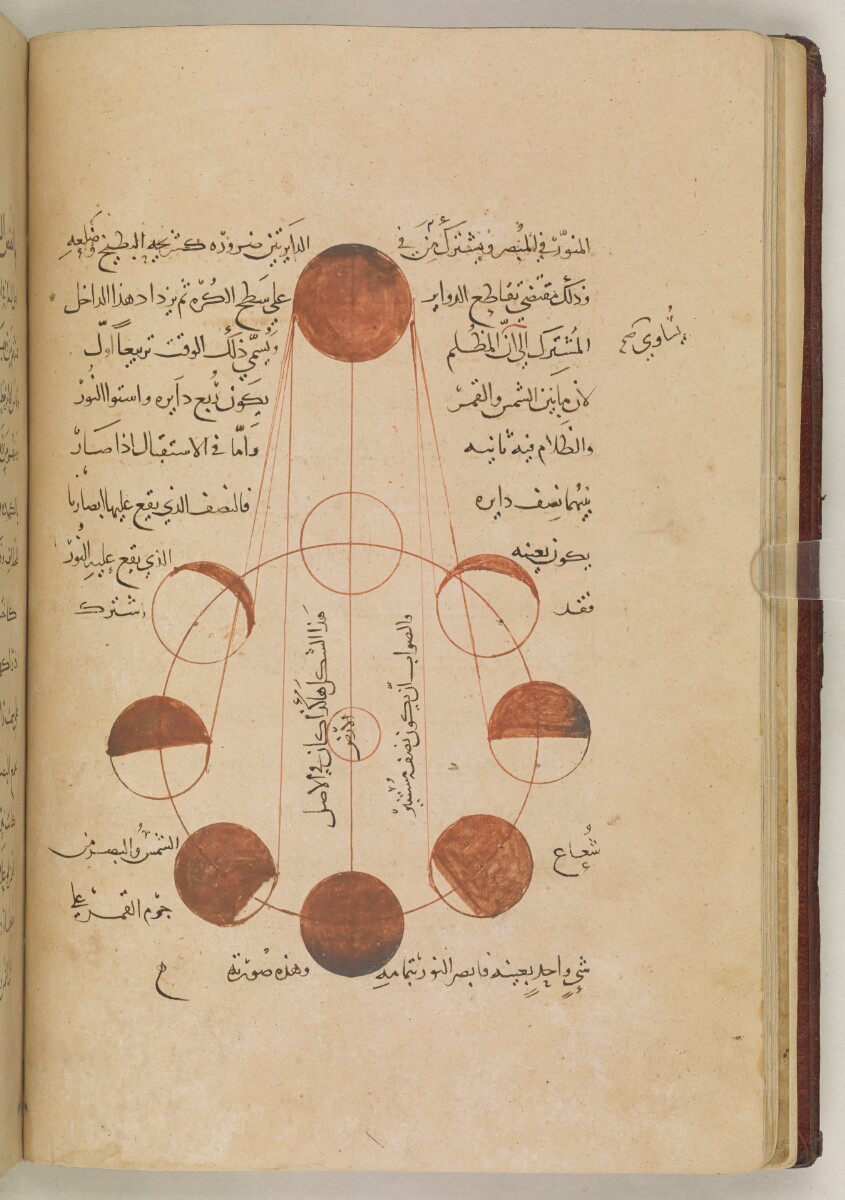 المنور في المبصر ويشترك من في الدايرتين ضروره كشريحه البطيخ وضلعه
وذلك مقتضي تقاطع الدواير علي سطح الكره ثم يزداد هذا الداخل
المشترك الي ان المظلم ويسمي ذلك الوقت تربيعا اول
يساوي صح
لان ما بين الشمس والقمر يكون ربع دايره واستوا النور
والظلام فيه ثانيه واما في الاستقبال اذا صار
بينهما نصف دايره فالنصف الذي يقع عليها ابصارنا
يكون بعينه الذي يقع عليه النور
فقد اشترك
هذا الشكل هكذا كان في الاصل
والصواب ان يكون نصفه مستنير
الارض
شعاع الشمس والبصر من
جرم القمر علي
شيء واحد بعينه فابصر النور بتمامه وهذه صورته